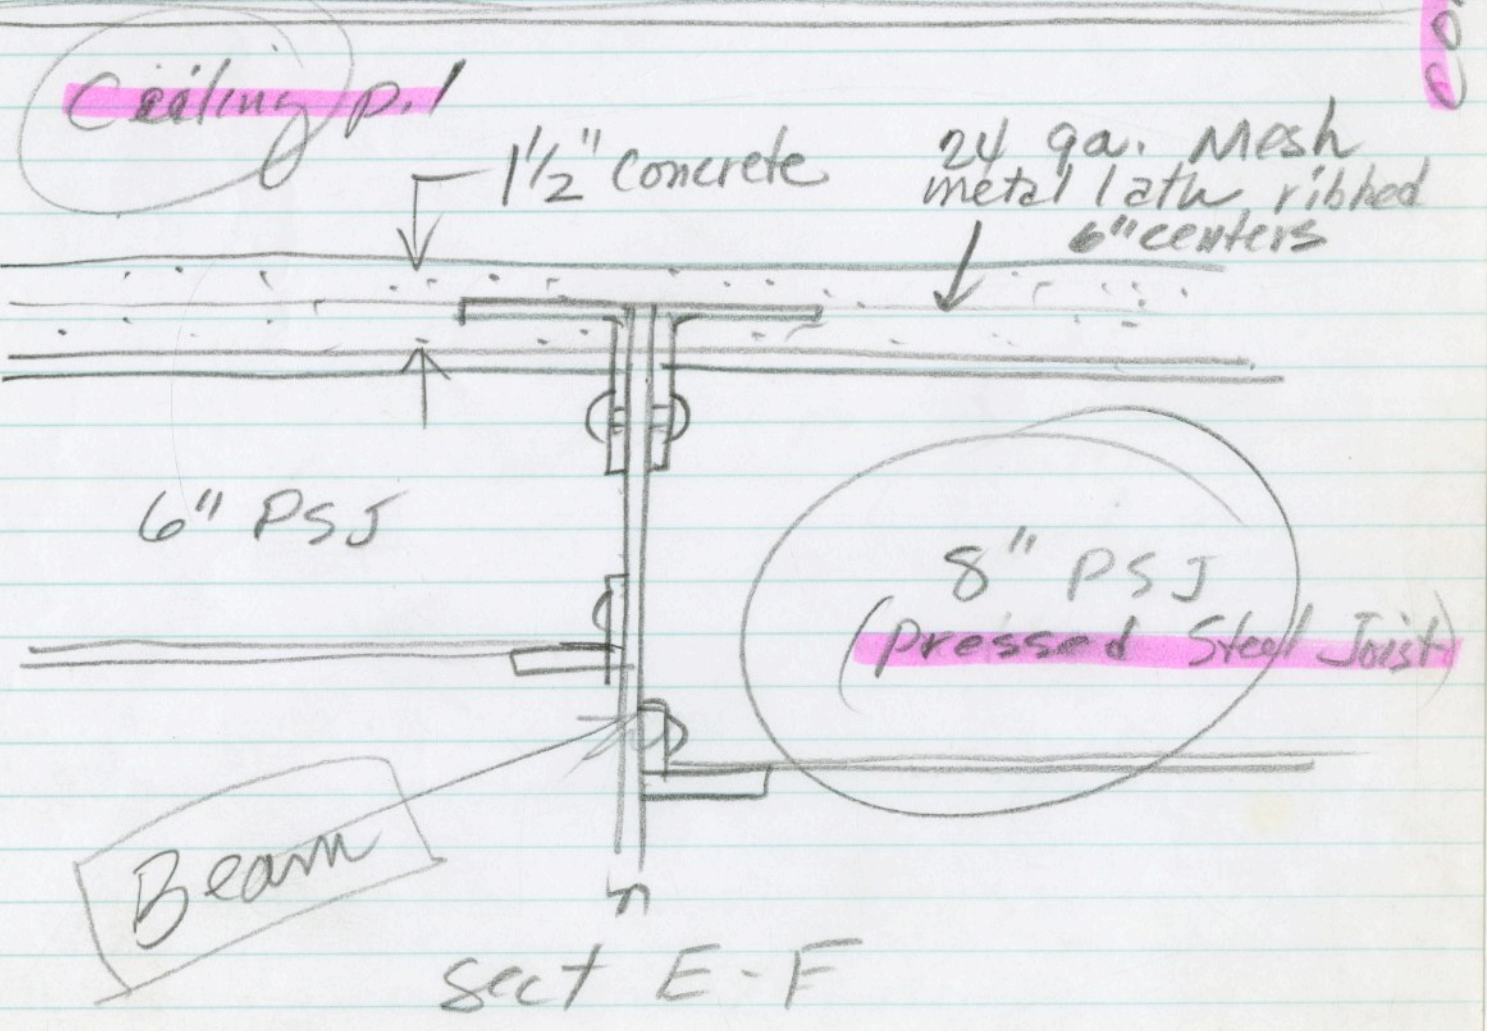 Ceiling p.1
1 1/2" concrete
24 ga. Mesh
metal lath ribbed
6" centers
6" PSJ
8" PSJ
(Pressed Steel Joist)
Beam
Sect E-F